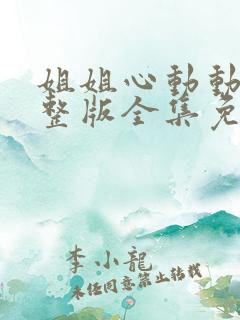 姐姐心動動
整版全集免
李小龍
未经同意禁止转载